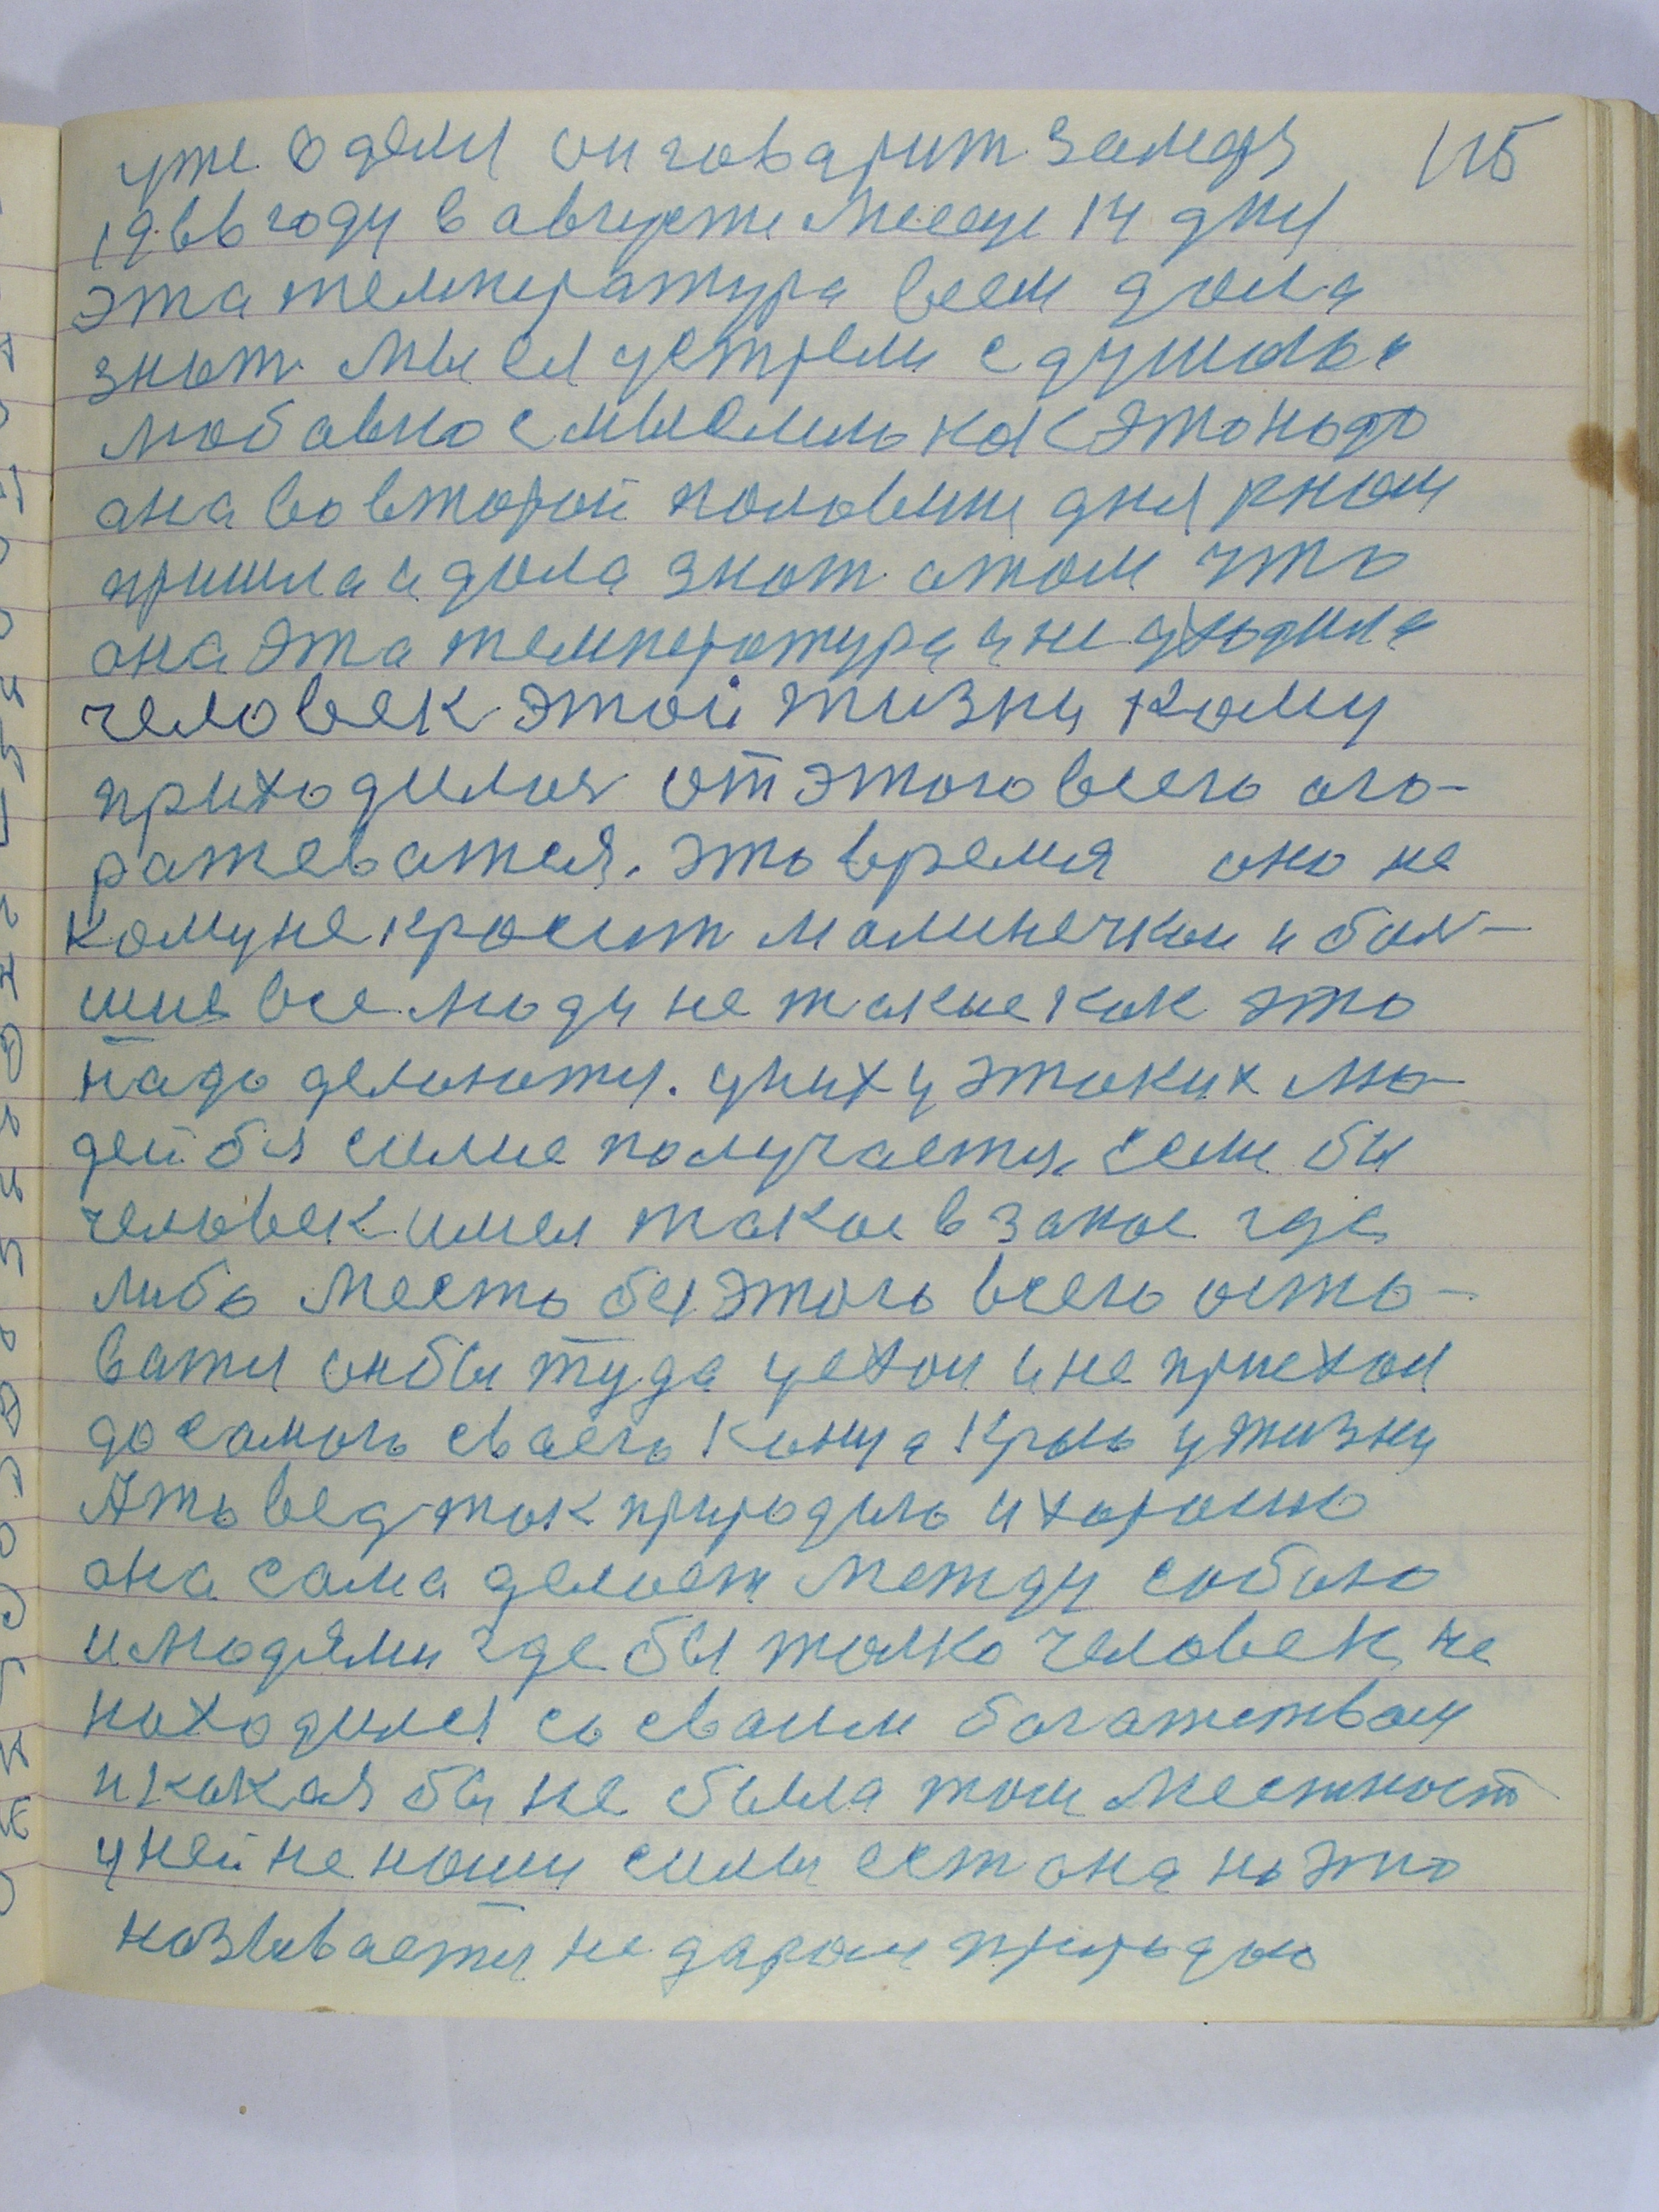 115
уже одел он говарит замерз
1966 году в августе месеце 14 дня
эта температура всем дала
знат. мы ея устрели с душою
любавю с мыслию как это надо
она во второй половине дня к нам
пришла и дала знат отом что
она эта температура и не уходила
человек этой жизни кому
приходился от этого всего ого-
ражеватся. это время оно не
кому не красит малинечкии и бол-
шие все люди не такие как это
надо делаются. у них у этаких лю-
дей бя силие получается если бы
человек имел такое в запое где
либо место бы этого всего оста-
ватся он бы туда уехал и не приехал
до самого своего конца край у жизни
А то вед так природаю и харошо
она сама делает между собою
и людями где бы толко человек не
находился со своим богатством
и какая бы не была там местност
у ней не наши силы ест она на это
называется не даром природою